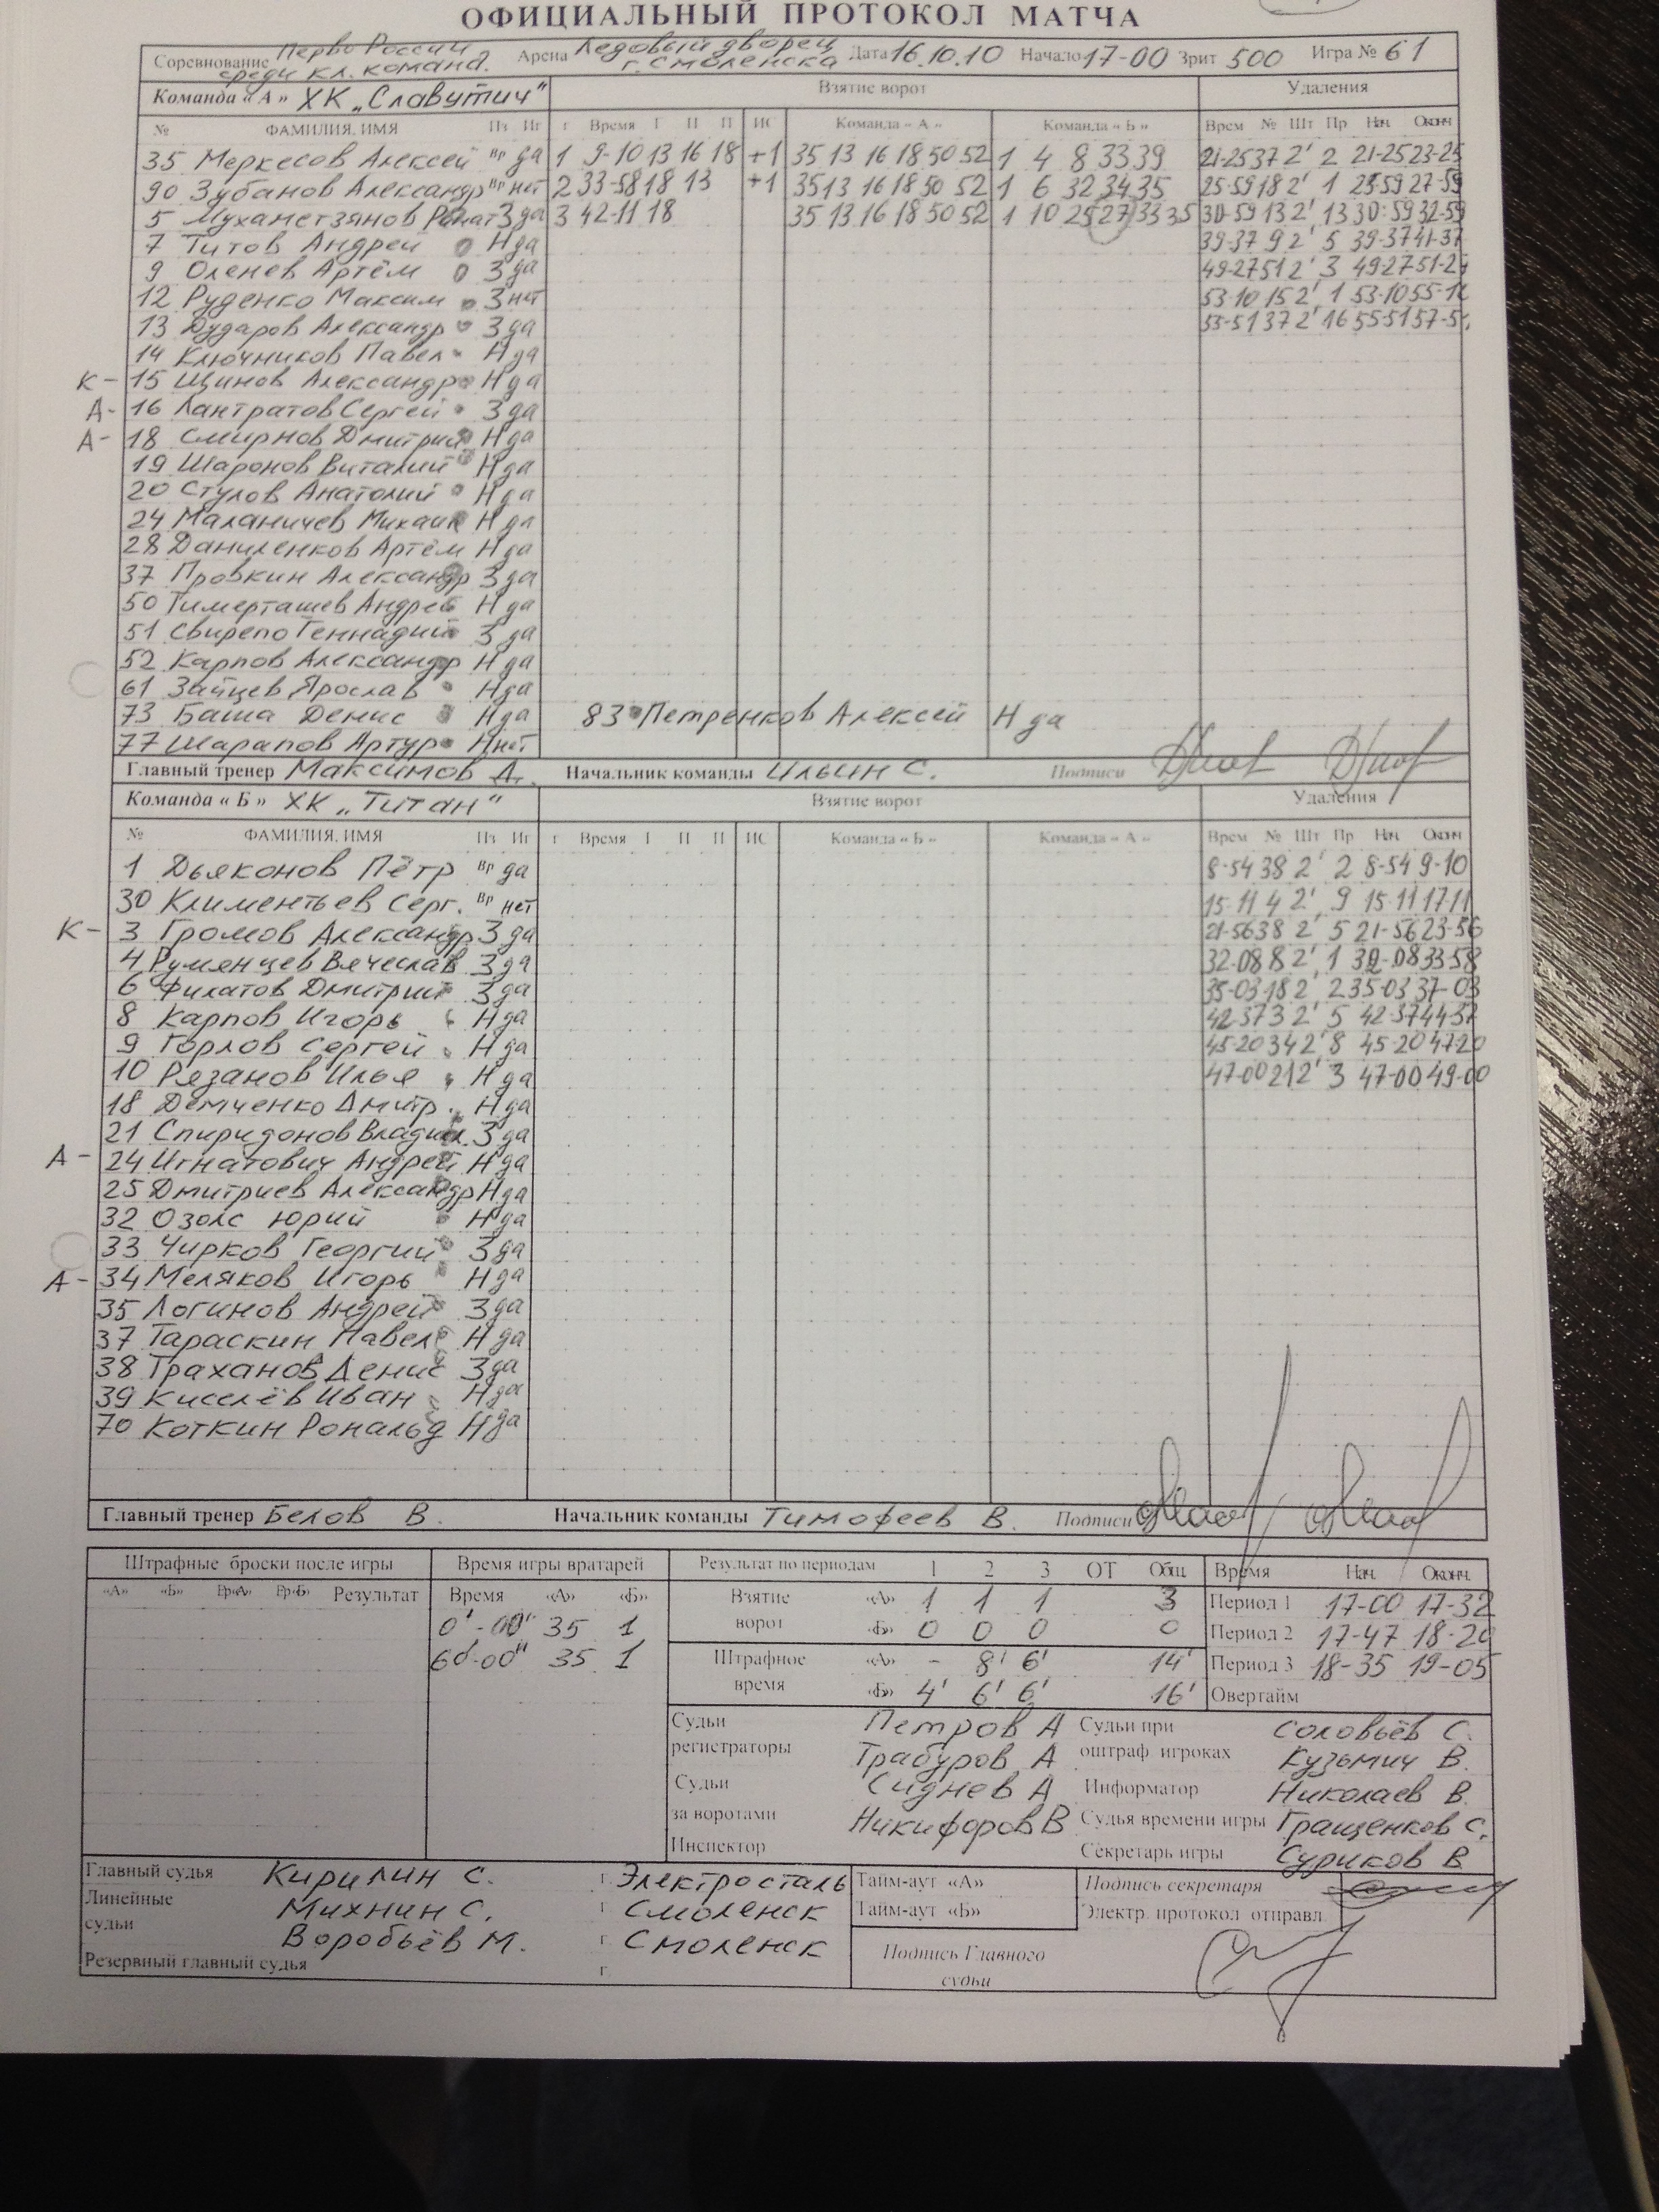 ОФИЦИАЛЬНЫЙ ПРОТОКОЛ МАТЧА
Соревнование Перво России среди кл. команд. Арена Ледовый дворец г. Смоленска Дата 16.10.10 Начало 17-00 Зрит 500 Игра № 61
Команда «А» ХК „Славутич" Взятие ворот Удаления
№ ФАМИЛИЯ, ИМЯ Пз Иг г Время Г П П ИС Команда «А» Команда «Б» Врем № Шт Пр Нач Оконч
35 Меркесов Алексей Вр да 1 9-10 13 16 18 +1 35 13 16 18 50 52 1 4 8 33 39 21-25 37 2' 2 21-25 23-25
90 Зубанов Александр Вр нет 2 33-58 18 13 +1 35 13 16 18 50 52 1 6 32 34 35 25-59 18 2' 1 25-59 27-59
5 Мухаметзянов Ренат З да 3 42-11 18 35 13 16 18 50 52 1 10 25 27 33 35 30-59 13 2' 13 30-59 32-59
7 Титов Андрей Н да 39-37 9 2' 5 39-37 41-37
9 Оленев Артём З да 49-27 51 2' 3 49-27 51-27
12 Руденко Максим З нет 53-10 15 2' 1 53-10 55-10
13 Дударов Александр З да 55-51 37 2' 16 55-51 57-51
14 Ключников Павел Н да
К- 15 Щинов Александр Н да
А- 16 Лантратов Сергей З да
А- 18 Смирнов Дмитрий Н да
19 Шаронов Виталий Н да
20 Стулов Анатолий Н да
24 Маланичев Михаил Н да
28 Даниленков Артём Н да
37 Провкин Александр З да
50 Тимерташев Андрей Н да
51 Свирепо Геннадий З да
52 Карпов Александр Н да
61 Зайцев Ярослав Н да
73 Баша Денис Н да 83 Петренков Алексей Н да
77 Шарапов Артур Н нет
Главный тренер Максимов А. Начальник команды Ильин С. Подписи
Команда «Б» ХК „Титан" Взятие ворот Удаления
№ ФАМИЛИЯ, ИМЯ Пз Иг г Время Г П П ИС Команда «Б» Команда «А» Врем № Шт Пр Нач Оконч
1 Дьяконов Пётр Вр да 8-54 38 2' 2 8-54 9-10
30 Климентьев Серг. Вр нет 15-11 4 2' 9 15-11 17-11
К- 3 Громов Александр З да 21-56 38 2' 5 21-56 23-56
4 Румянцев Вячеслав З да 32-08 8 2' 1 32-08 33-58
6 Филатов Дмитрий З да 35-03 18 2' 2 35-03 37-03
8 Карпов Игорь Н да 42-37 3 2' 5 42-37 44-37
9 Горлов Сергей Н да 45-20 34 2' 8 45-20 47-20
10 Рязанов Илья Н да 47-00 21 2' 3 47-00 49-00
18 Демченко Дмитр. Н да
21 Спиридонов Владим. З да
А- 24 Игнатович Андрей Н да
25 Дмитриев Александр Н да
32 Озолс Юрий Н да
33 Чирков Георгий З да
А- 34 Меляков Игорь Н да
35 Логинов Андрей З да
37 Тараскин Павел Н да
38 Траханов Денис З да
39 Киселёв Иван Н да
70 Коткин Рональд Н да
Главный тренер Белов В. Начальник команды Тимофеев В. Подписи
Штрафные броски после игры Время игры вратарей Результат по периодам 1 2 3 ОТ Общ. Время Нач. Оконч.
«А» «Б» Вр«А» Вр«Б» Результат Время «А» «Б» Взятие ворот «А» 1 1 1 3 Период 1 17-00 17-32
0'-00" 35 1 «Б» 0 0 0 0 Период 2 17-47 18-20
60'-00" 35 1 Штрафное время «А» - 8' 6' 14' Период 3 18-35 19-05
«Б» 4' 6' 6' 16' Овертайм
Судьи регистраторы Петров А Судьи при оштраф. игроках Соловьёв С.
Трабуров А Кузьмич В.
Судьи за воротами Сиднев А Информатор Николаев В.
Никифоров В Судья времени игры Гращенков С.
Инспектор Секретарь игры Суриков В
Главный судья Кирилин С. г. Электросталь Тайм-аут «А» Подпись секретаря
Линейные судьи Михнин С. г. Смоленск Тайм-аут «Б» Электр. протокол отправл.
Воробьёв М. г. Смоленск Подпись Главного судьи
Резервный главный судья г.